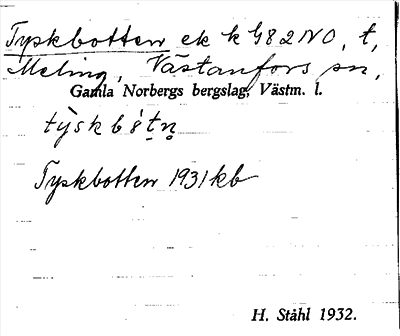 Tyskbotten ek k G82NO, t,
Meling, Västanfors sn,
Gamla Norbergs bergslag, Västm. l.
Tyskbotten 1931 kb
H. Ståhl 1932.